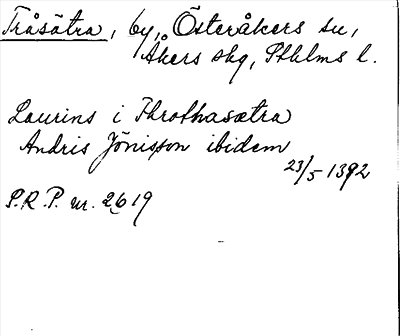 Tråsätra, by, Österåkers sn,
Åkers skg, Sthlms l.
Laurins i Throthasætra
Andris Jönisson ibidem
23/5 1392
P.R.P. nr. 2619